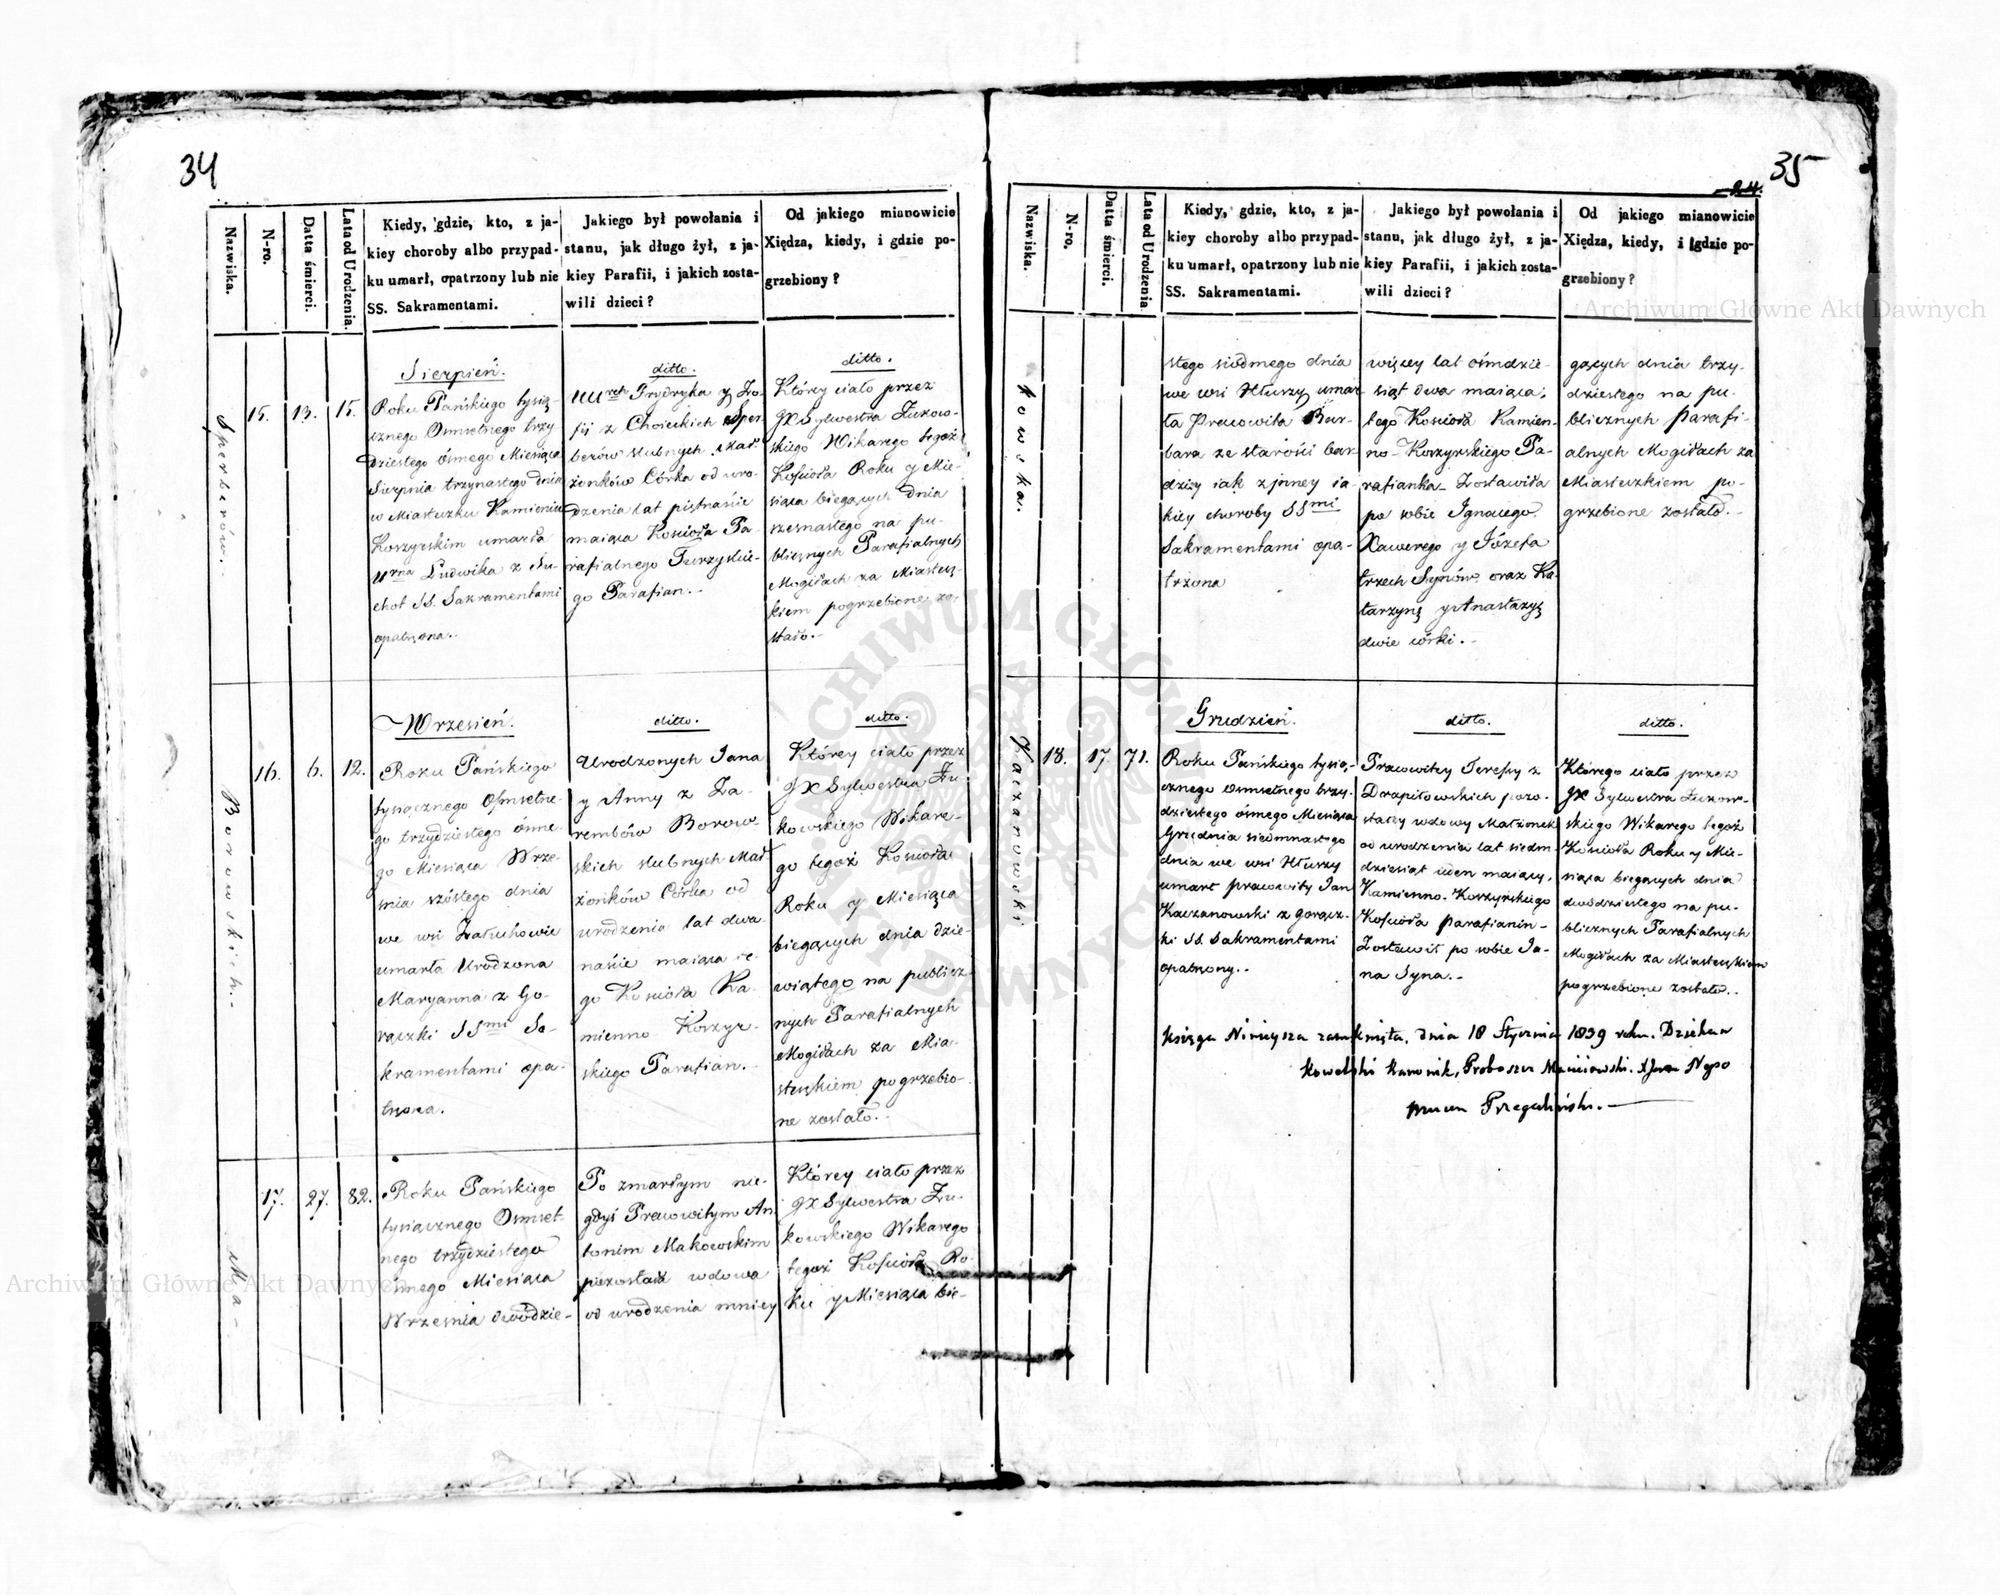 34
Nazwiska.
N-ro.
Datta śmierci.
Lata od Urodzenia.
Kiedy, gdzie, kto, z ja-
kiey choroby albo przypad-
ku umarł, opatrzony lub nie
SS. Sakramentami.
Jakiego był powołania i
stanu, jak długo żył, z ja-
kiey Parafii, i jakich zosta-
wili dzieci?
Od jakiego mianowicie
Xiędza, kiedy, i gdzie po-
grzebiony?
Sperberów.
15.
13.
15.
Sierpień.
Roku Pańskiego tysią-
cznego Osmsetnego trzy
dziestego ósmego Miesiąca
Sierpnia trzynastego dnia
w Miasteczku Kamieniu
Koszyrskim umarła
Urna Ludwika z Su-
chot SS. Sakramentami
opatrzona.-
ditto.
Fryderyka y Zo-
fii z Choieckich Sper
berów slubnych Mał
żonków Córka od uro-
dzenia lat piętnaście
maiąca Kościoła Pa-
rafialnego Turzyskie-
go Parafian.-
ditto.
Którey ciało przez
JX Sylwestra Żukow-
skiego Wikarego tegoż
Kościoła Roku y Mie-
siąca biegących dnia
szesnastego na pu-
blicznych Parafialnych
Mogiłach za Miastecz-
kiem pogrzebione zo-
stało.-
Borowskich.-
16.
6.
12.
Wrzesień.
Roku Pańskiego
tysiącznego Osmsetne-
go trzydziestego ósme-
go Miesiąca Wrze-
śnia szóstego dnia
we wsi
umarła Urodzona
Maryanna z Go-
rączki SSmi Sa-
kramentami opa-
trzona.
ditto.
Urodzonych Jana
y Anny z Za-
rembów Borow-
skich slubnych Mał
żonków Córka od
urodzenia lat dwa
naście maiąca te-
go Kościoła Ka-
mienno Koszyr-
skiego Parafian.-
ditto.
Którey ciało przez
JX Sylwestra Żu-
kowskiego Wikare-
go tegoż Kościoła
Roku y Miesiąca
biegących dnia dzie-
wiątego na publicz-
nych Parafialnych
Mogiłach za Mia-
steczkiem pogrzebio-
ne zostało.-
Ma-
17.
27.
82.
Roku Pańskiego
tysiącznego Osmset-
nego trzydziestego
ósmego Miesiąca
Września dwódzie-
Po zmarłym nie-
gdyś Pracowitym An
tonim Makowskim
pozostała wdowa
od urodzenia mniey
Którey ciało przez
JX Sylwestra Żu-
kowskiego Wikarego
tegoż Kościoła Ro-
ku y Miesiąca bie-
35
24.
Nazwiska.
N-ro.
Datta śmierci.
Lata od Urodzenia.
Kiedy, gdzie, kto, z ja-
kiey choroby albo przypad-
ku umarł, opatrzony lub nie
SS. Sakramentami.
Jakiego był powołania i
stanu, jak długo żył, z ja-
kiey Parafii, i jakich zosta-
wili dzieci?
Od jakiego mianowicie
Xiędza, kiedy, i gdzie po-
grzebiony?
kowska.
stego siódmego dnia
we wsi Hłuszy umar
ła Pracowita Bar-
bara ze starości bar
dziey iak z inney ia-
kiey choroby SSmi
Sakramentami opa-
trzona
więcey lat ośmdzie-
siąt dwa maiąca;
tego Kościoła Kamien-
no-Koszyrskiego Pa-
rafianka- Zostawiła
po sobie Ignacego
Xawerego y Józefa
trzech Synów, oraz Ka
tarzynę y Anastazyę
dwie córki.-
gących dnia trzy-
dziestego na pu-
blicznych Parafi-
alnych Mogiłach za
Miasteczkiem po-
grzebione zostało.-
Kaczanowski
18.
17
71.
Grudzień.
Roku Pańskiego tysią-
cznego Osmsetnego trzy-
dziestego ósmego Miesiąca
Grudnia siedmnastego
dnia we wsi Hłuszy
umarł pracowity Jan
Kaczanowski z gorącz-
ki SS. Sakramentami
opatrzony.-
ditto.
Pracowitey Teresy z
Drapiłowskich pozo-
stałey wdowy Małżonek
od urodzenia lat siedm
dziesiąt ieden maiący,
Kamienno-Koszyrskiego
Kościoła Parafianin-
Zostawił po sobie Ja-
na Syna.-
ditto.
Którego ciało przez
JX Sylwestra Żukow-
skiego Wikarego tegoż
Kościoła Roku y Mie-
siąca biegących dnia
dwódziestego na pu-
blicznych Parafialnych
Mogiłach za Miasteczkiem
pogrzebione zostało.-
Księga Ninieysza zamknięta, dnia 18 Stycznia 1839 roku. Dziekan
Kowelski Kanonik, Proboszcz Maciiowski. X Jan Nepo
mucen Przegaliński.-
Archiwum Główne Akt Dawnych
Archiwum Główne Akt Dawnych
ARCHIWUM GŁÓWNE AKT DAWNYCH